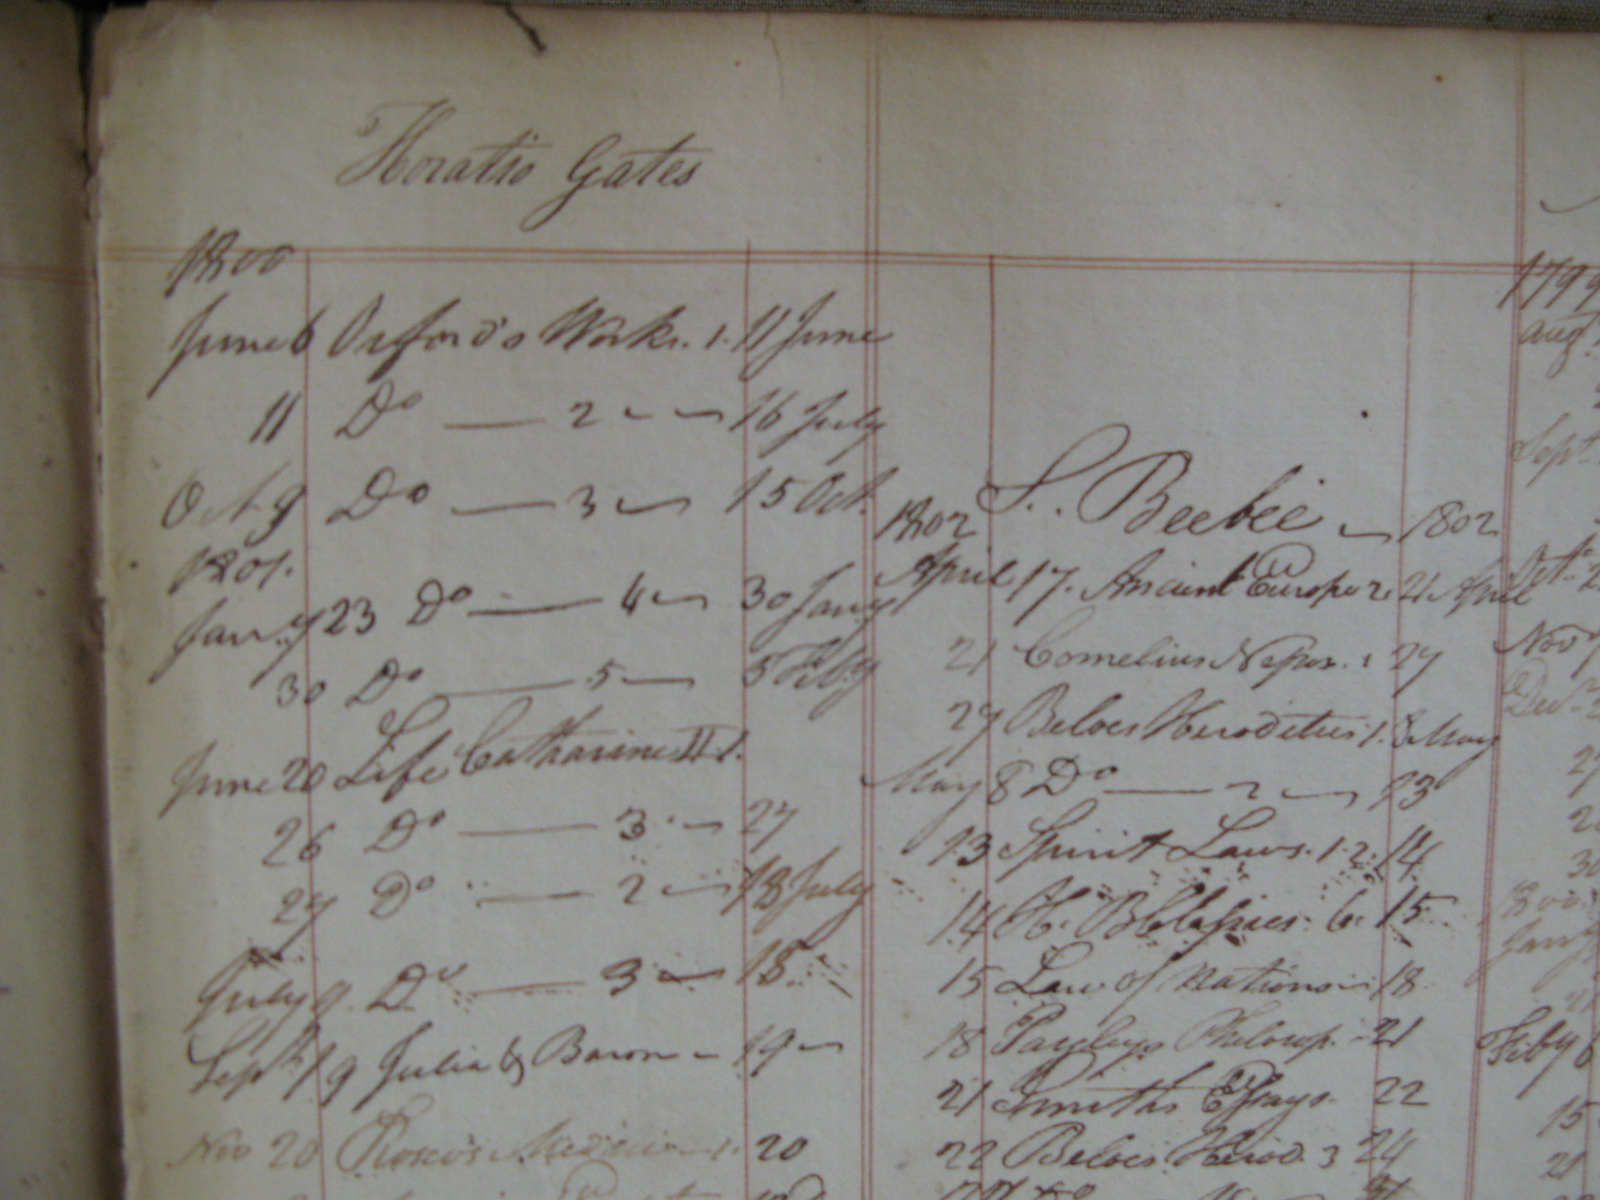 Horatio Gates
1800
June 6 Orford's Works. 1. 11 June
11 Do — 2 16 July
Oct. 9 Do — 3 15 Oct.
1801.
Jan.y 23 Do — 4 30 Jany
30 Do — 5 5 Feby
June 20 Life Catharine II 1.
26 Do — 3 27
27 Do — 2 18 July
July 9 Do — 3 18
Sept 19 Julia & Baron 19
Nov 20 Roscoe's Medici 1. 20
S. Beebee
1802 1802
April 17. Ancient Europe 2. 21 April
21 Cornelius Nepos. 1 27
27 Beloes Herodetus 1. 8 May
May 8 Do — 2 23
13 Spirit Laws. 1. 2. 14
14 H. 6. 15
15 Law of Nations 18
18 Philosop. 21
21 Smiths Essays. 22
22 Beloes Herod. 3 24
1799
Aug
Sept.
Oct.
Nov
Dec.
27
30
1800
Jany
21
Feby 6
15
21